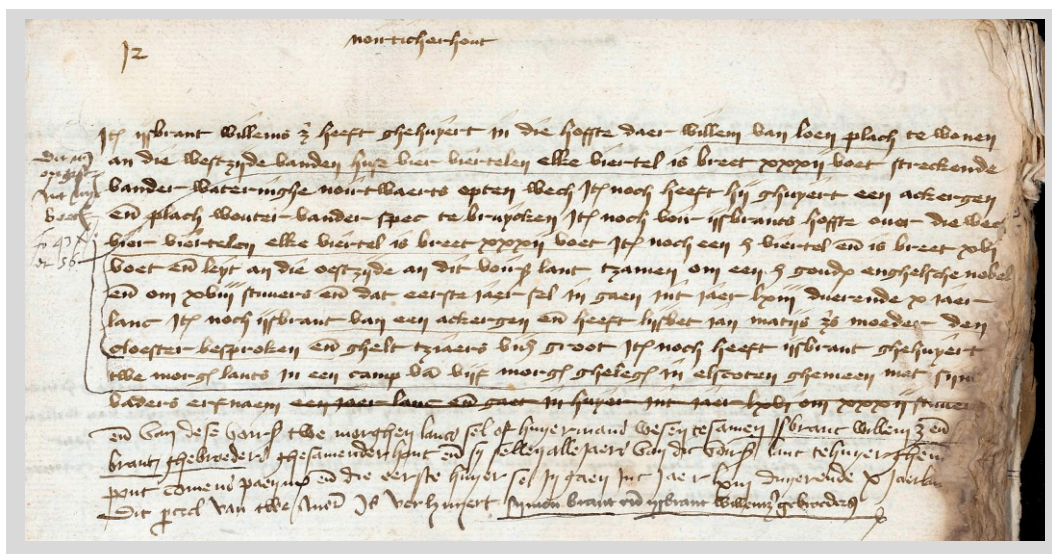 noirticherhout
12
Itē ijsbrant willems z̄ heeft ghehuyert in die hoffte daer willem van loen plach te wonen
an die westzijde vanden huyse vier viertelen elke viertel is breet xxxii voet streckende
vander wateringhe noirtwaerts opten wech Itē noch heeft hij ghuyert een ackergen
en̄ plach wouter vander spec te bruycken Itē noch voir ijsbrants hoffte over die wech
vier viertelen elke viertel is breet xxxii voet Itē noch een viertel en̄ is breet xvi
voet en̄ leyt an die oestzijde an dit lant tzamen om een enghelsche nobel
en̄ om xviii stuvers en̄ dat eerste jaer sel in gaen int jaer lxiii duerende x jaer
lanc Itē noch ijsbrant van een ackergen en̄ heeft lijsbet jan matijs z̄s moeder den
cloester besproken en̄ ghelt tziaers groot Itē noch heeft ijsbrant ghehuyert
twe morgē lants in een camp vā vijf morgē gheleḡ in elscoten ghemeen met sijns
vaders erfnaem een jaer lanc en̄ gaet in huyer int jaer lxvi om xxxii stuver
en̄ van dese twe morghen lants sel of huyermans wesen tesamen ijsbrant willem z̄ en̄
brant ghebroeders en̄ sij sellen alle jaers van dit lant
pont en̄ die eerste huyer sel in gaen int jaer duerende x jaer
Dit perceel van twe is verhuyert symon brant en̄ ijsbrant willemz̄ gebroeders